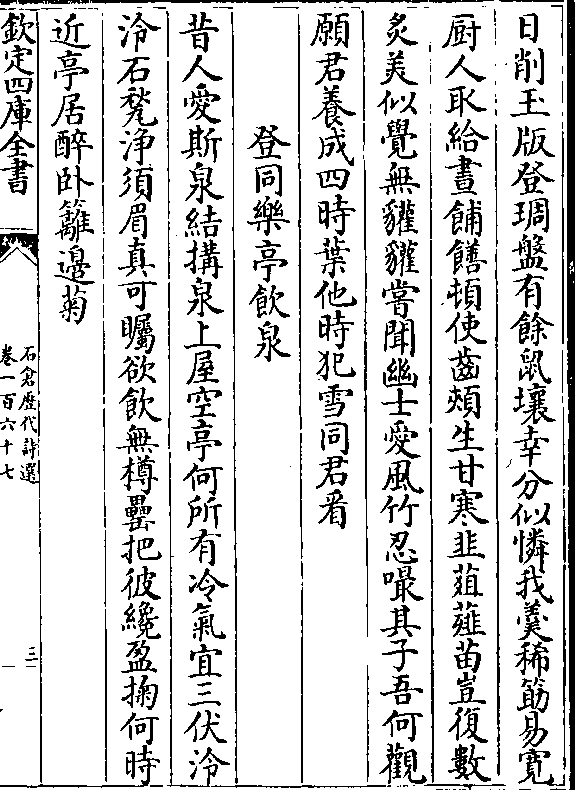 日削玉版登琱盤有餘鼠壤幸分似憐我羹稀筯易寛
厨人取給晝餔饍頓使齒頰生甘寒韭葅薤苗豈復數
炙美似覺無貛貛嘗聞幽士愛風竹忍嘬其子吾何觀
願君養成四時葉他時犯雪同君看
登同樂亭飲泉
昔人愛斯泉結搆泉上屋空亭何所有冷氣宜三伏泠
泠石甃浄須眉真可矚欲飲無樽罍把彼纔盈掬何時
近亭居醉卧籬邉菊
欽定四庫全書
石倉歴代詩選
卷一百六十七
三